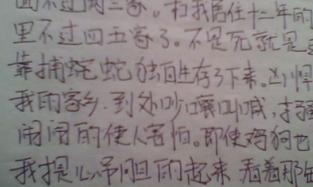 面不过两三家。和我居住十二年的
里不过四五家了。不是死就是
靠捕蛇 蛇独自生存了下来。凶悍
我的家乡,到外吵嚷叫喊,
闹闹的使人害怕。即使鸡狗也
我提心吊胆的起来 看着那